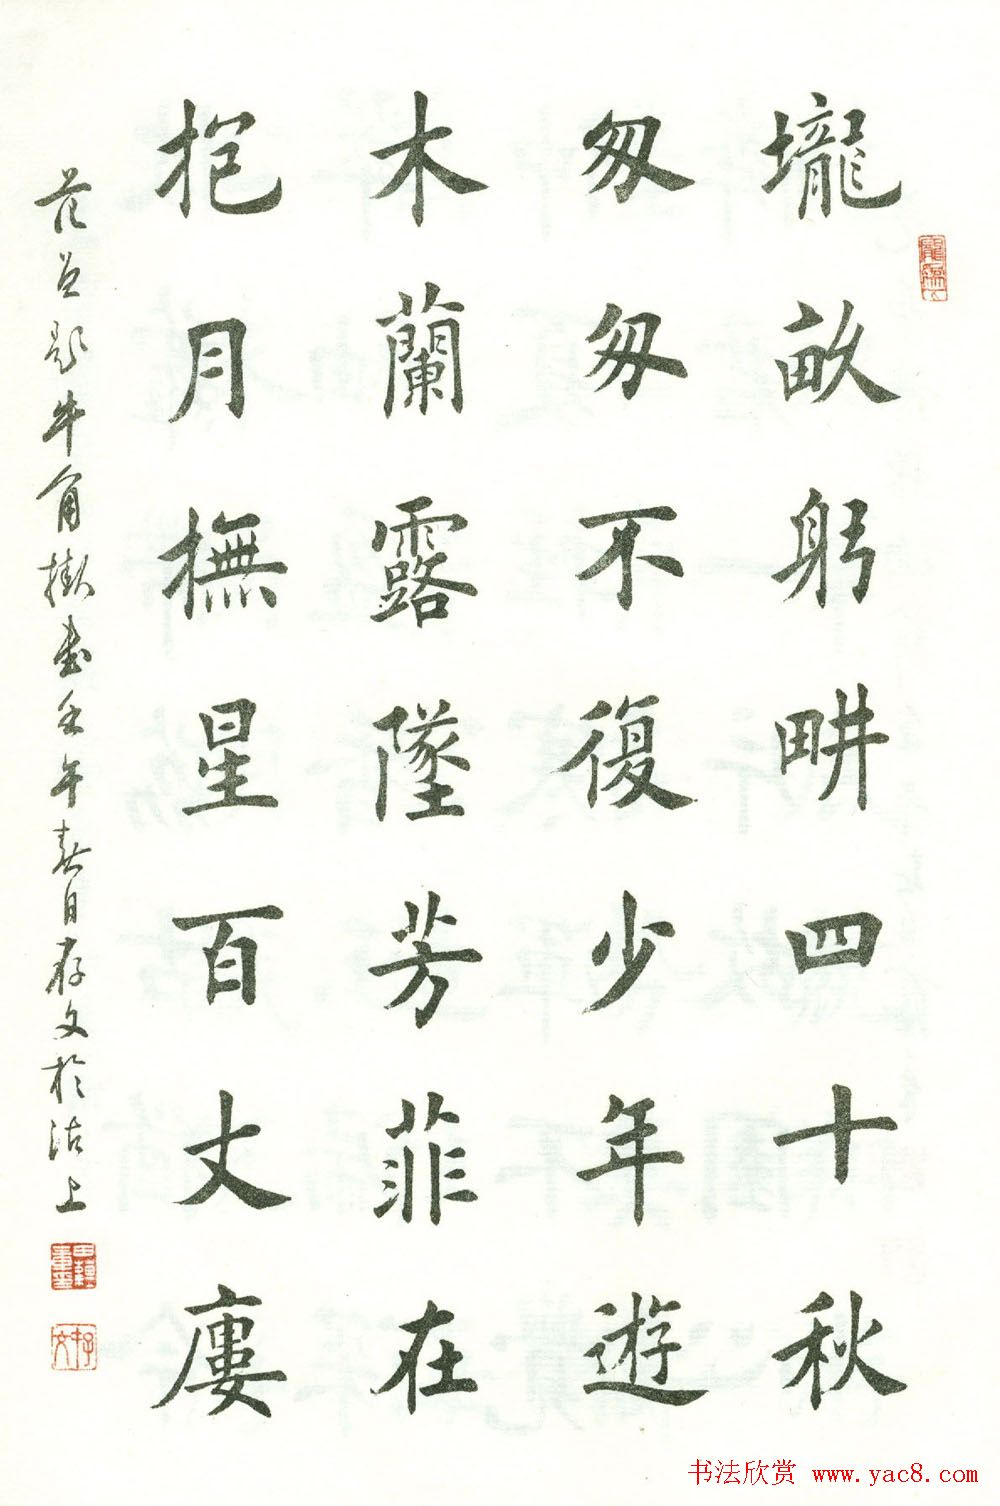 壠畝躬畊四十秋
匆匆不復少年遊
木蘭露墜芳菲在
抱月撫星百丈廔
范曾題牛角掛書壬午春日存文於沽上
书法欣赏 www.yac8.com